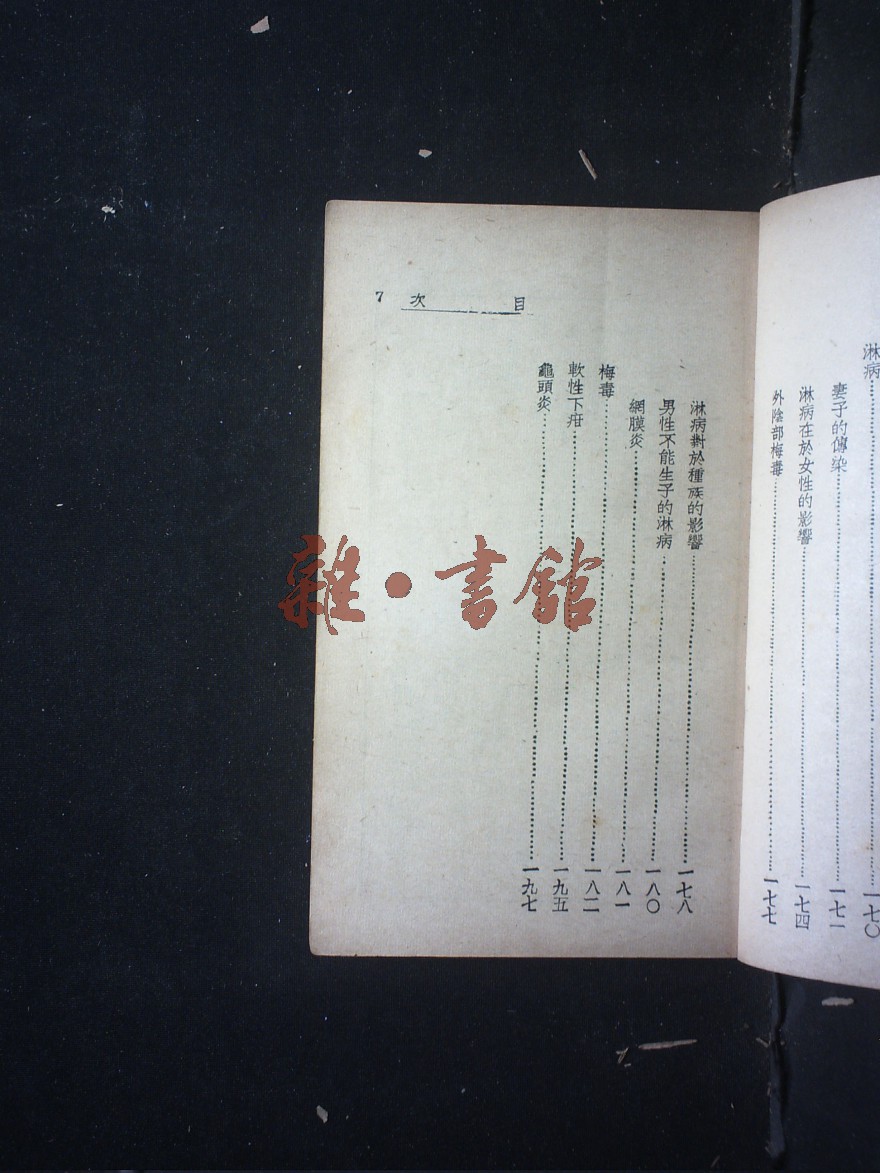 淋病……一七〇
妻子的傳染……一七一
淋病在於女性的影響……一七四
外陰部梅毒……一七七
目次 7
淋病對於種族的影響……一七八
男性不能生子的淋病……一八〇
網膜炎……一八一
梅毒……一八二
軟性下疳……一九五
龜頭炎……一九七
雜·書館